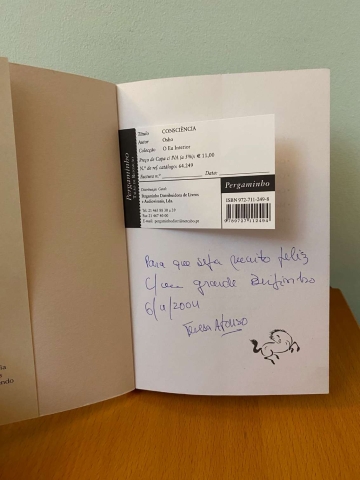 Pergaminho
Título CONSCIÊNCIA
Autor Osho
Colecção O Eu Interior
Preço de Capa c/ IVA (a 5%): € 11,00
N.º de ref. catálogo: 64.249
Factura n.º Data:
Distribuição Geral:
Pergaminho Distribuidora de Livros
e Audiovisuais, Lda.
Fax 21
E-mail:
Pergaminho
ISBN 972-711-249-8
9789727112494
Para que seja muito feliz
C/um grande Beijinho
6/11/2004
Teresa Afonso